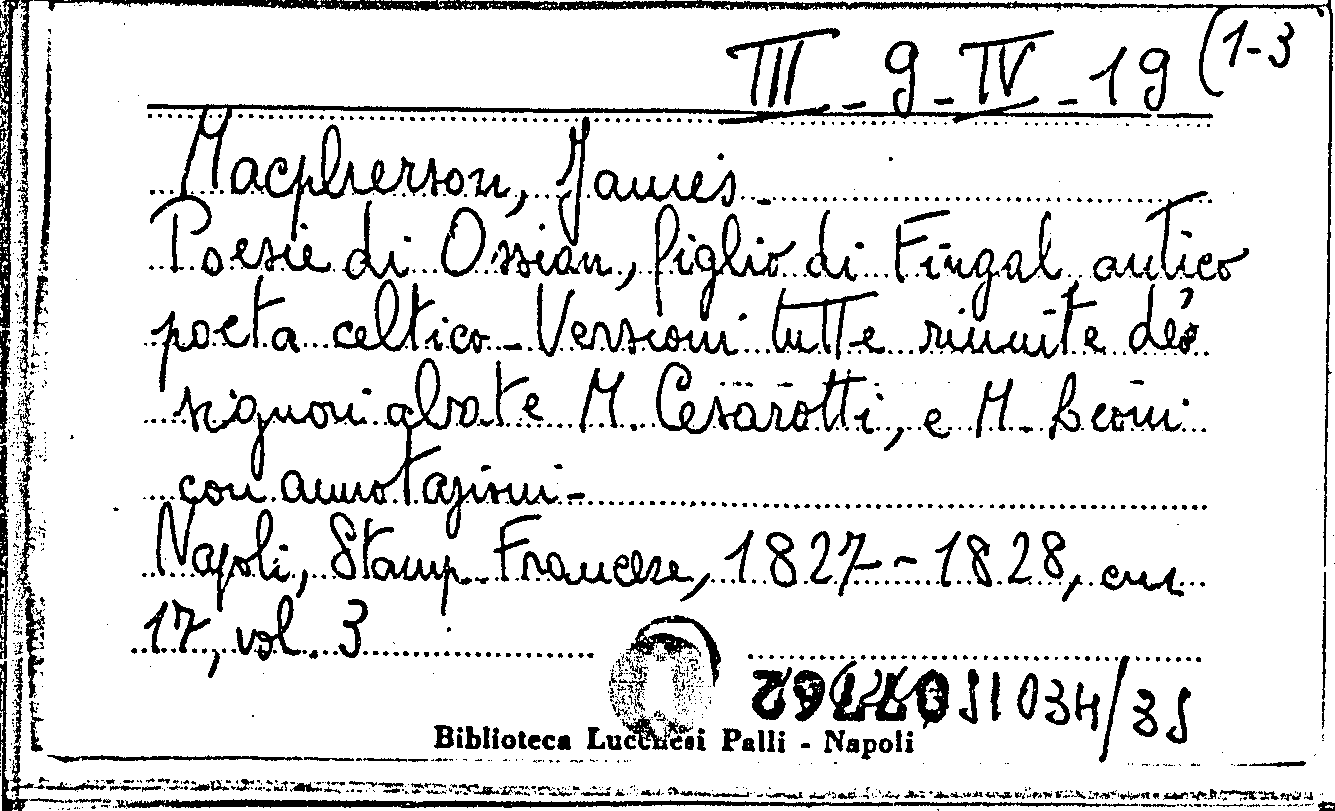 III - 9 - IV - 19 (1-3
Macpherson, James -
Poesie di Ossian, figlio di Fingal, antico
poeta celtico - Versioni tutte riunite dei
signori abate M. Cesarotti, e M. Leoni
con annotazioni -
Napoli, Stamp. Francese, 1827-1828, cm
17, vol. 3
Biblioteca Lucchesi Palli - Napoli